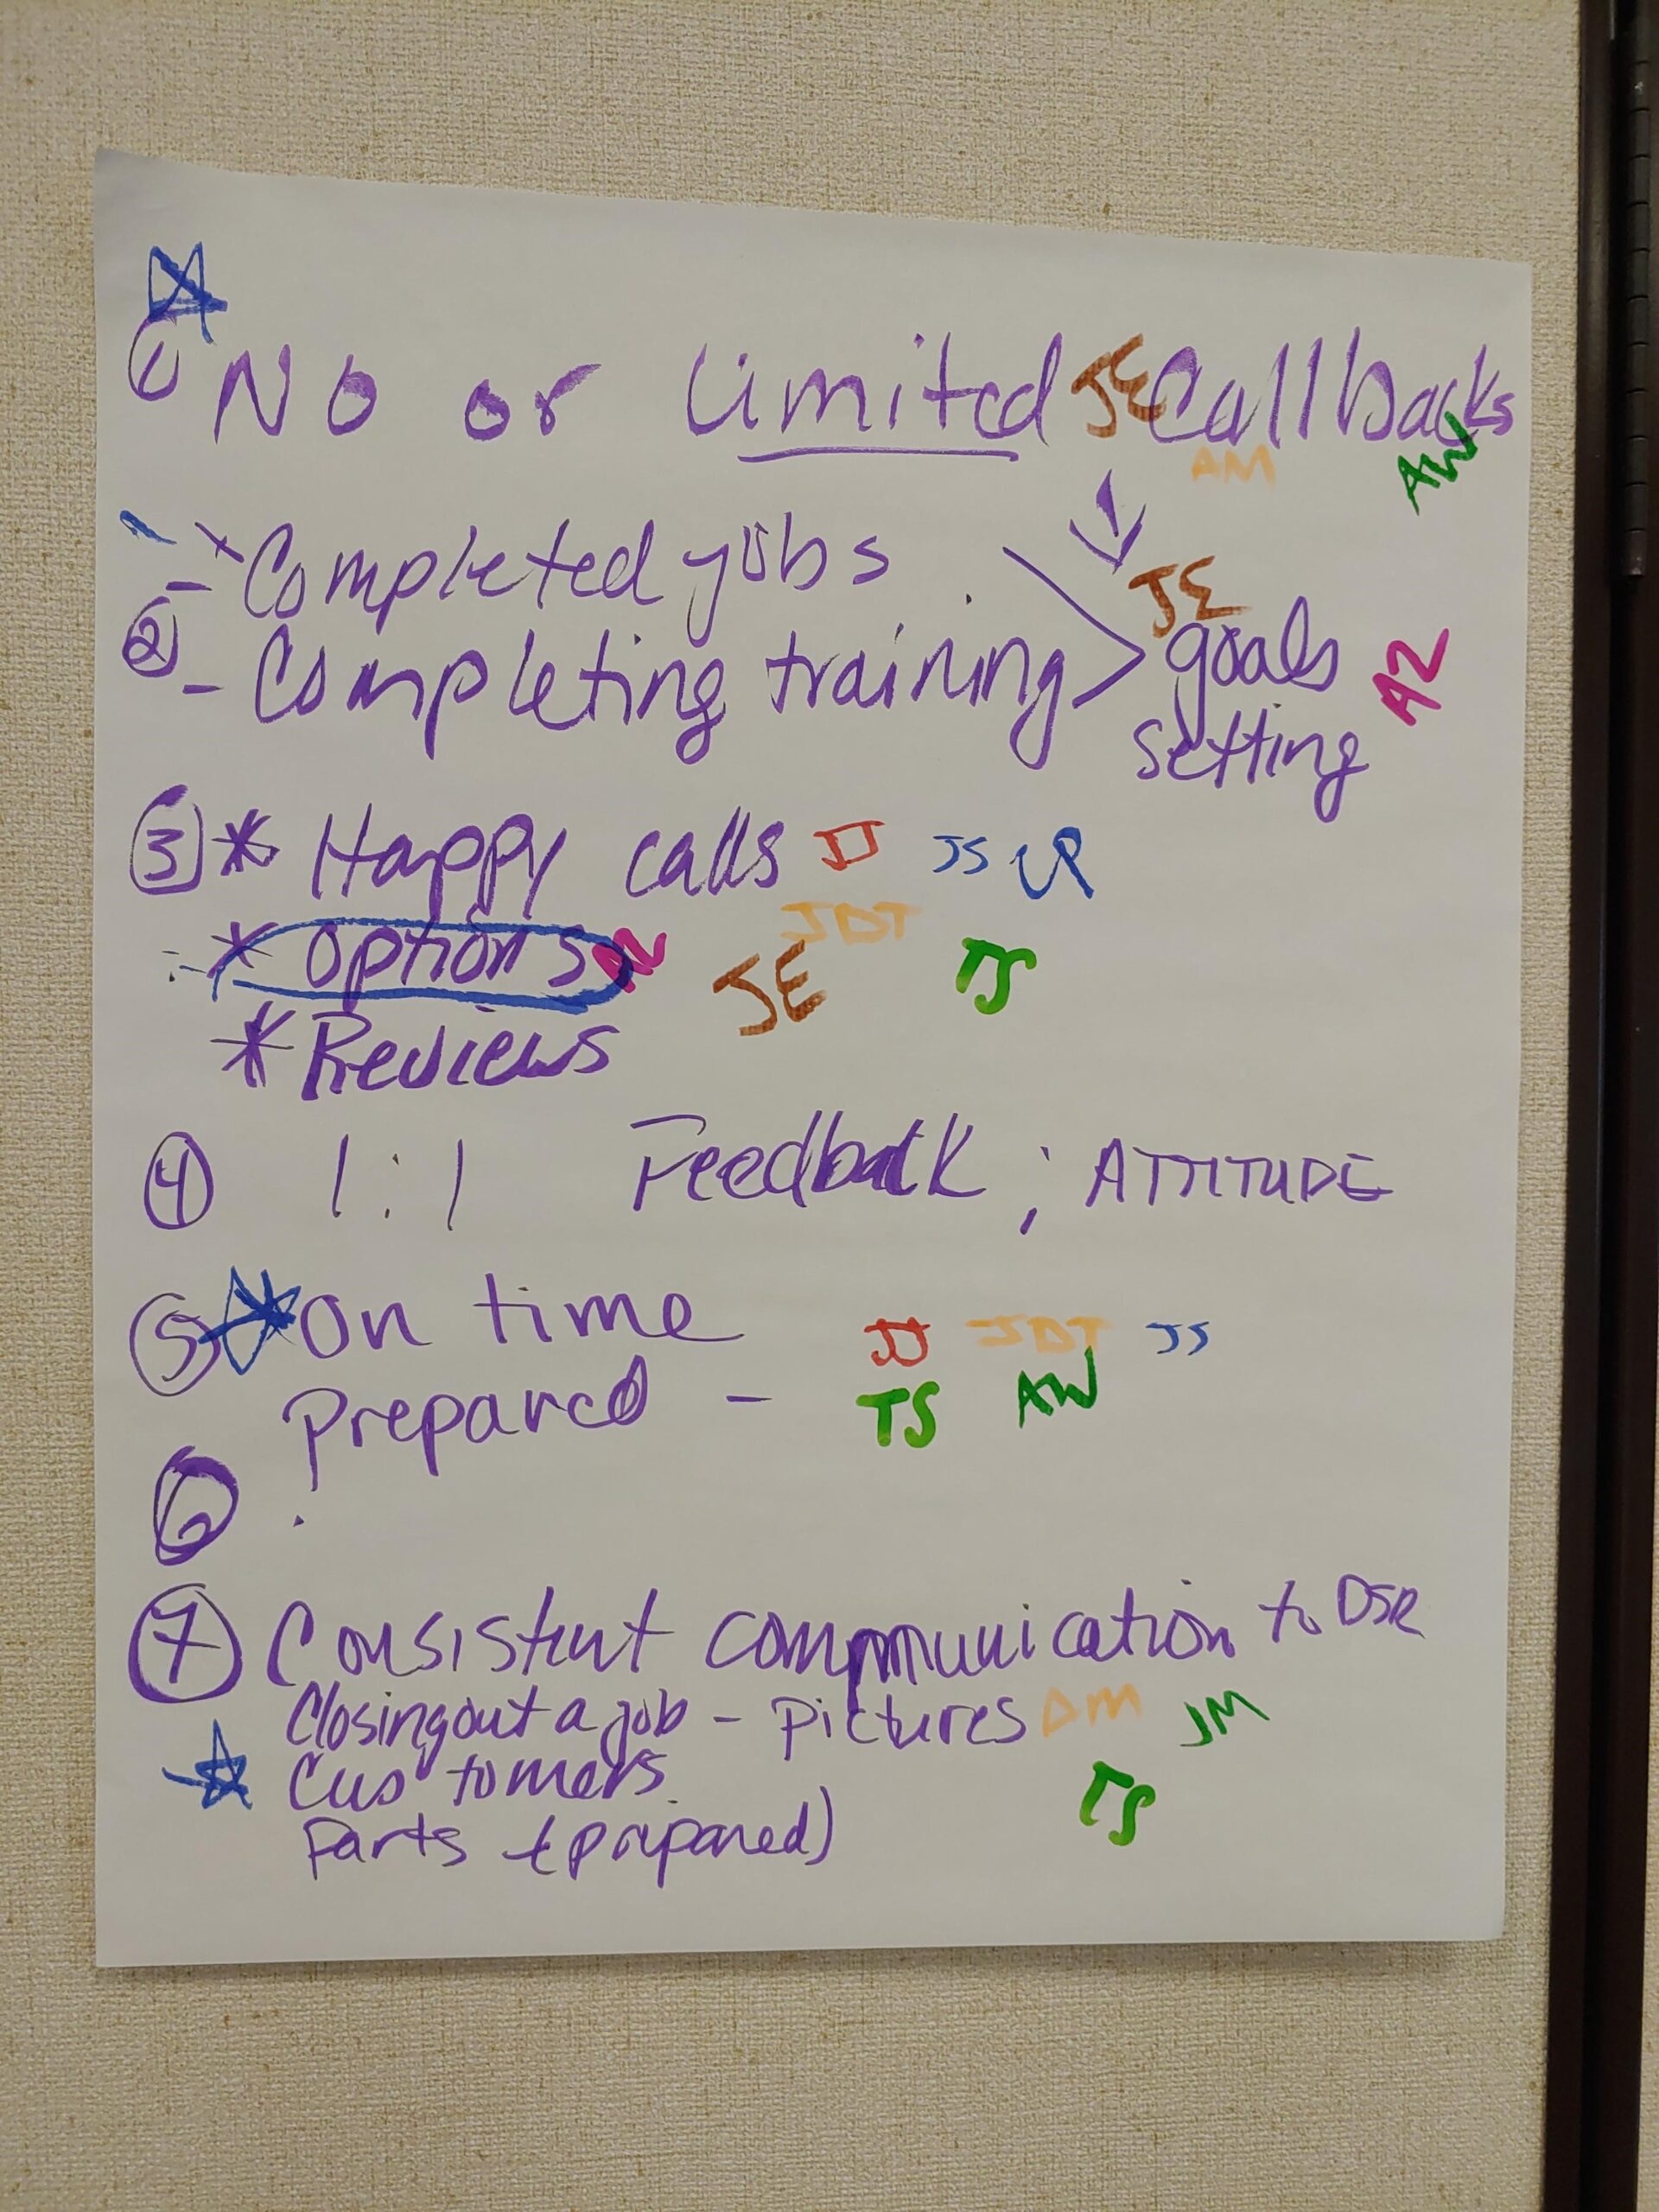 ① No or Limited JE Callbacks
AM AW
- Completed jobs
JE
② - Completing training > goals AZ
setting
③ * Happy calls JJ JS
JDT
* Options AZ JE TS
* Reviews
④ 1:1 Feedback ; ATTITUDE
⑤ On time JJ JDT JS
Prepared - TS AW
⑥
⑦ Consistent communication to DSR
Closing out a job - Pictures JM
Customers TS
Parts (prepared)